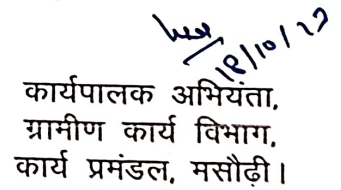 18/10/23
कार्यपालक अभियंता,
ग्रामीण कार्य विभाग,
कार्य प्रमंडल, मसौढ़ी।